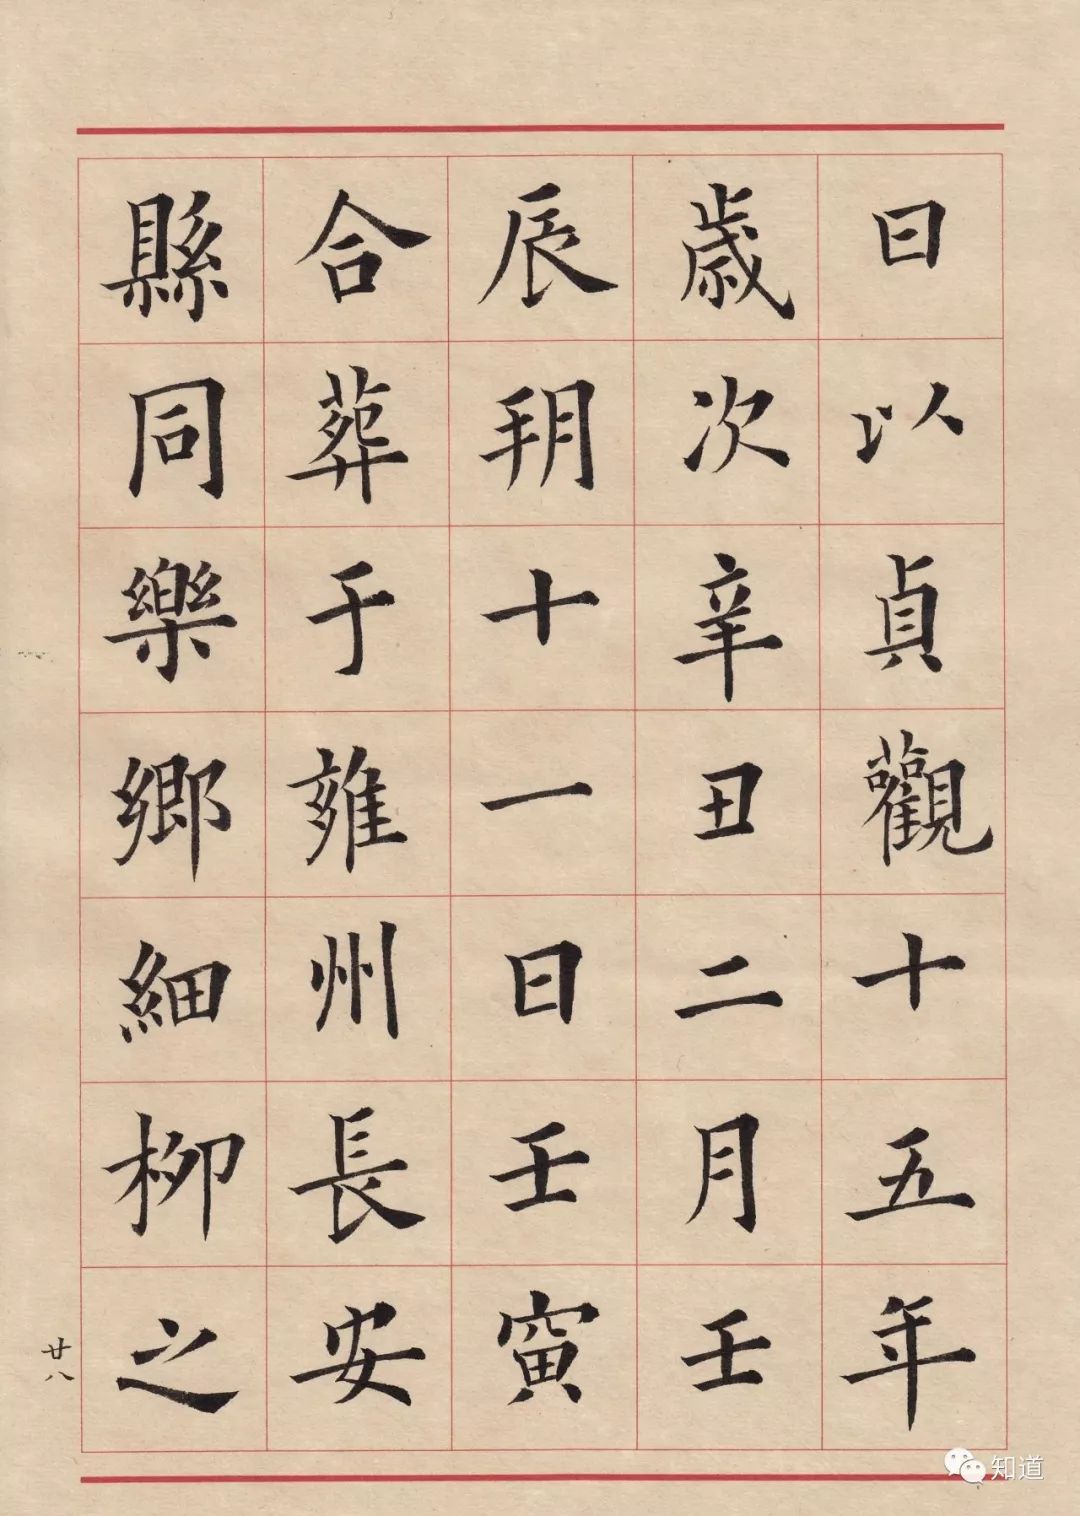 日以貞觀十五年
歲次辛丑二月壬
辰朔十一日壬寅
合葬于雍州長安
縣同樂鄉細柳之
廿八
知道